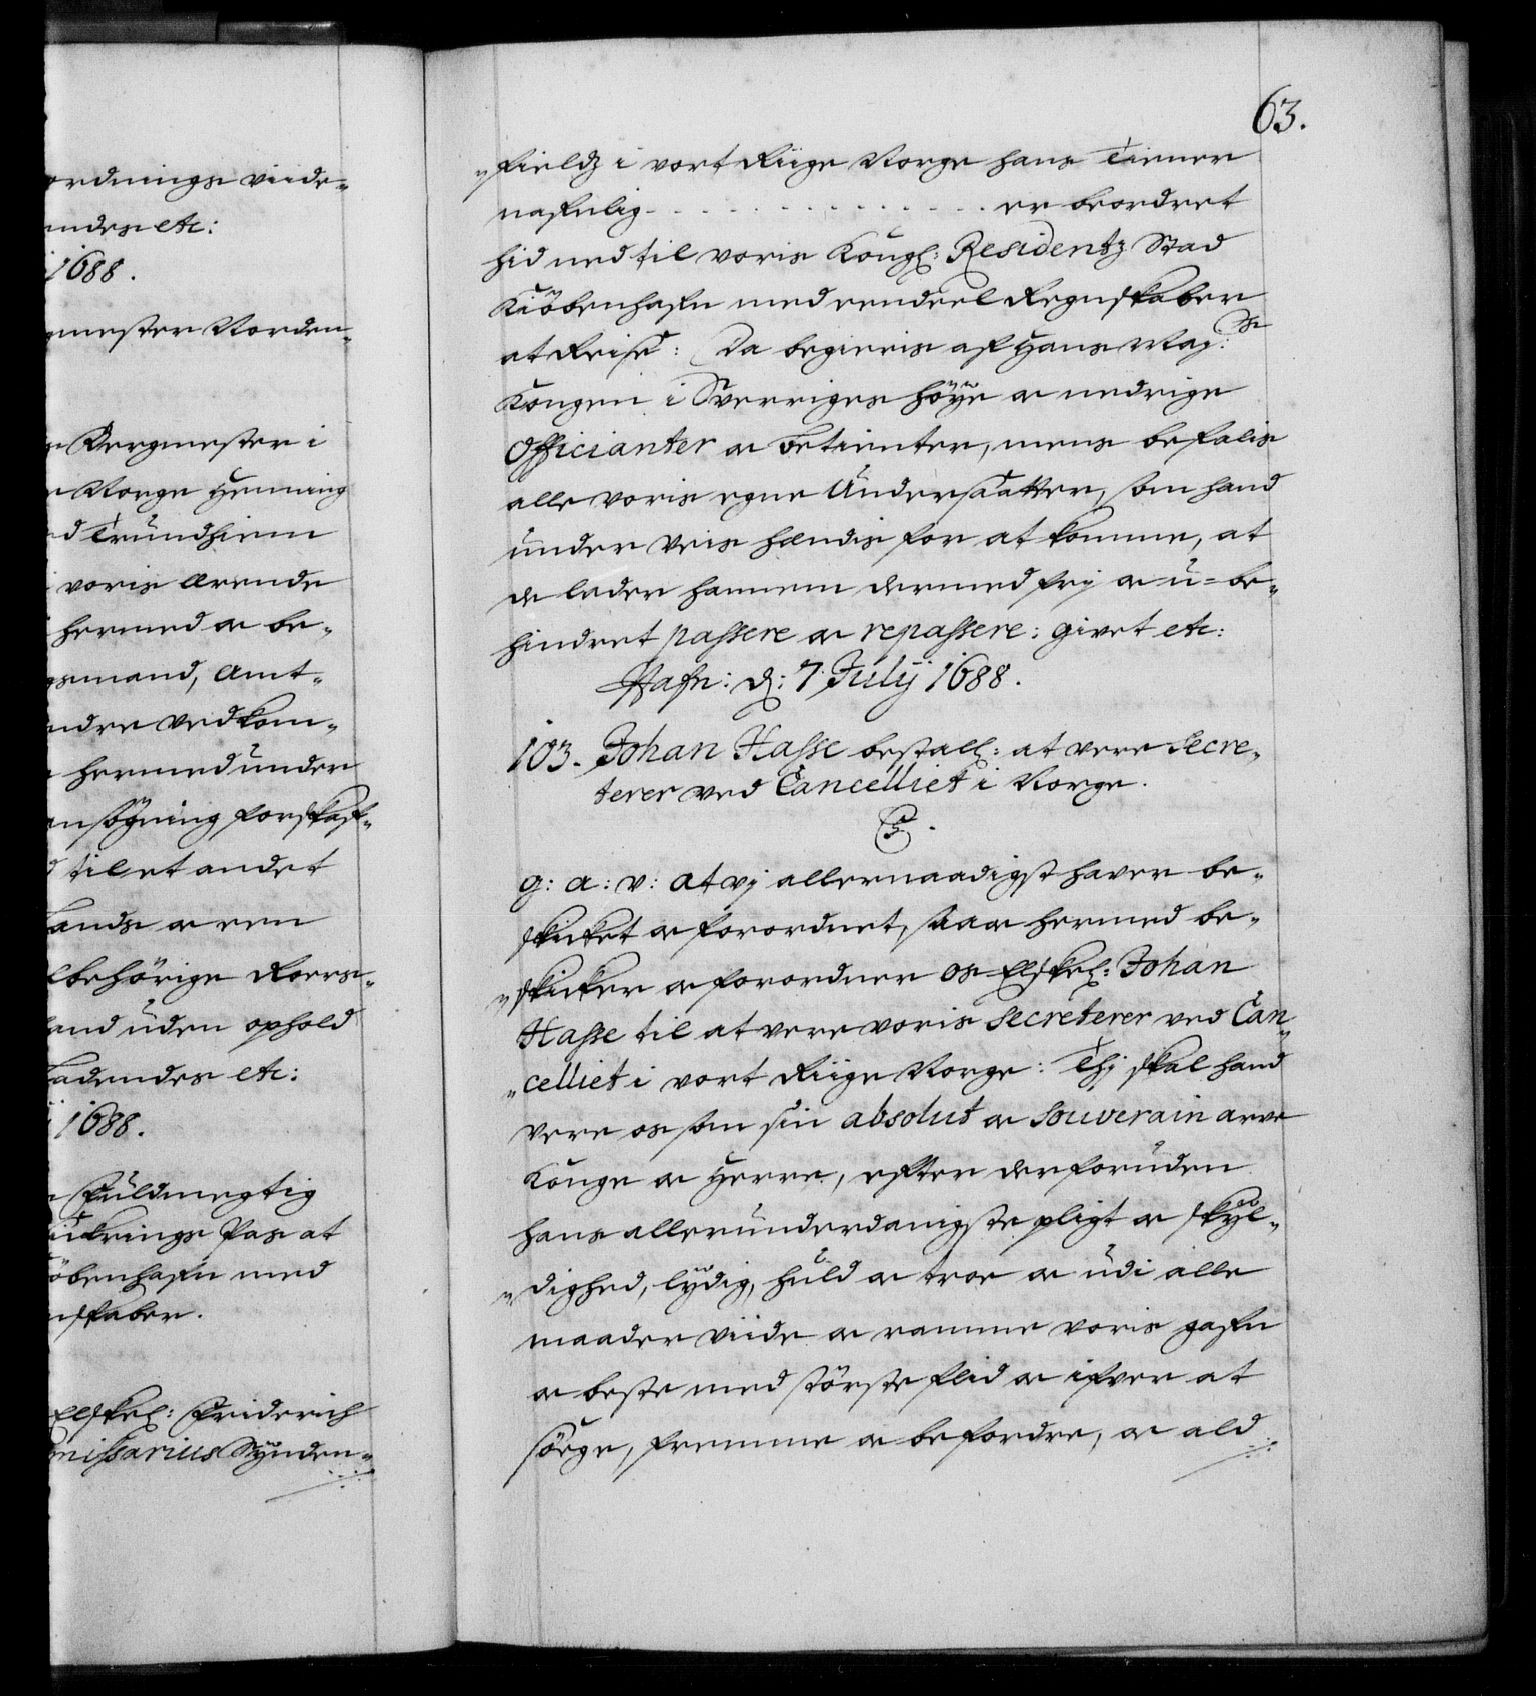 ordnings viide-
andes etc:
1688.
gmester Norden-
Bergmester i
Norge Henning
d Trundhiem
voris Ærende
hermed oc be-
gsmand, Amt-
ndre vedkom-
hermed under
ansøgning forskaf-
til et andet
lands oc een
behörige Roers-
and uden ophold
ladendes etc:
1688.
Fuldmegtig
ickrings Pas at
öbenhafn med
nskaber.
Elskel: Friderich
missarius Synden-
63.
-fields i vort Riige Norge hans Tiener
nafnlig - - - - - - - - - - - - er beordret
hid ned til voris Kongl: Residentz Stad
Kiöbenhafn med eendeel Regnskaber
at Reise: Da begieris af Hans May:ts
Kongen i Sverriges höye oc nedrige
Officianter oc betienter, mens befalis
alle voris egne Undersaatter, som hand
under Veis hendis for at komme, at
de lader hannem dermed frj oc u-be-
hindret passere oc repassere: givet etc:
Hafn: d: 7 Julij 1688.
103. Johan Hasse bestall: at vere Secre-
terer ved Cancelliet i Norge.
C5.
G: A: V: At vj allernaadigst haver be-
skicket oc forordnet, saa oc hermed be-
-skicker oc forordner Os Elskel: Johan
Hasse til at vere voris Secreterer ved Can-
-celliet i vort Riige Norge: Thj skal hand
vere os som sin absolut oc Souverain arve
Konge oc Herre, efter derforuden
hans allerunderdanigste pligt oc skyl-
-dighed, lydig, huld oc troe oc udi alle
maader viide oc ramme voris gafn
oc beste med störste flid oc ifver at
söge, fremme oc befordre, oc ald